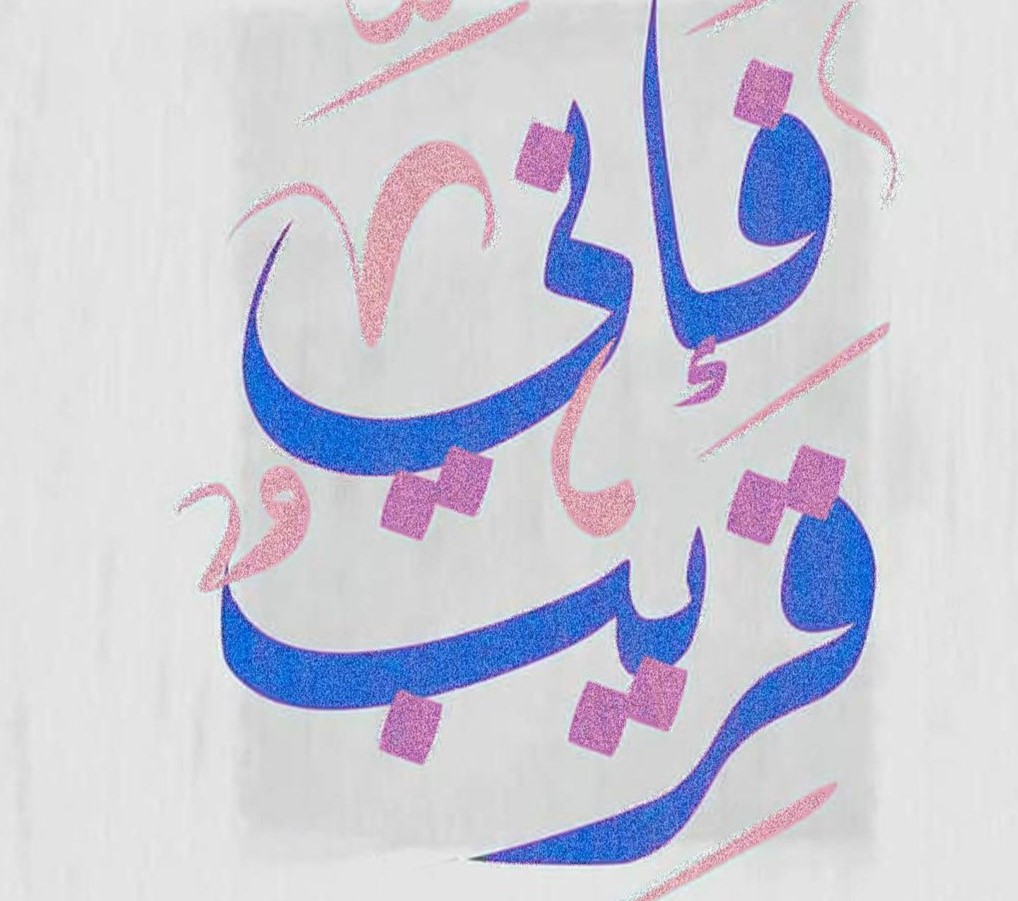 فَإِنِّي
قَرِيبٌ